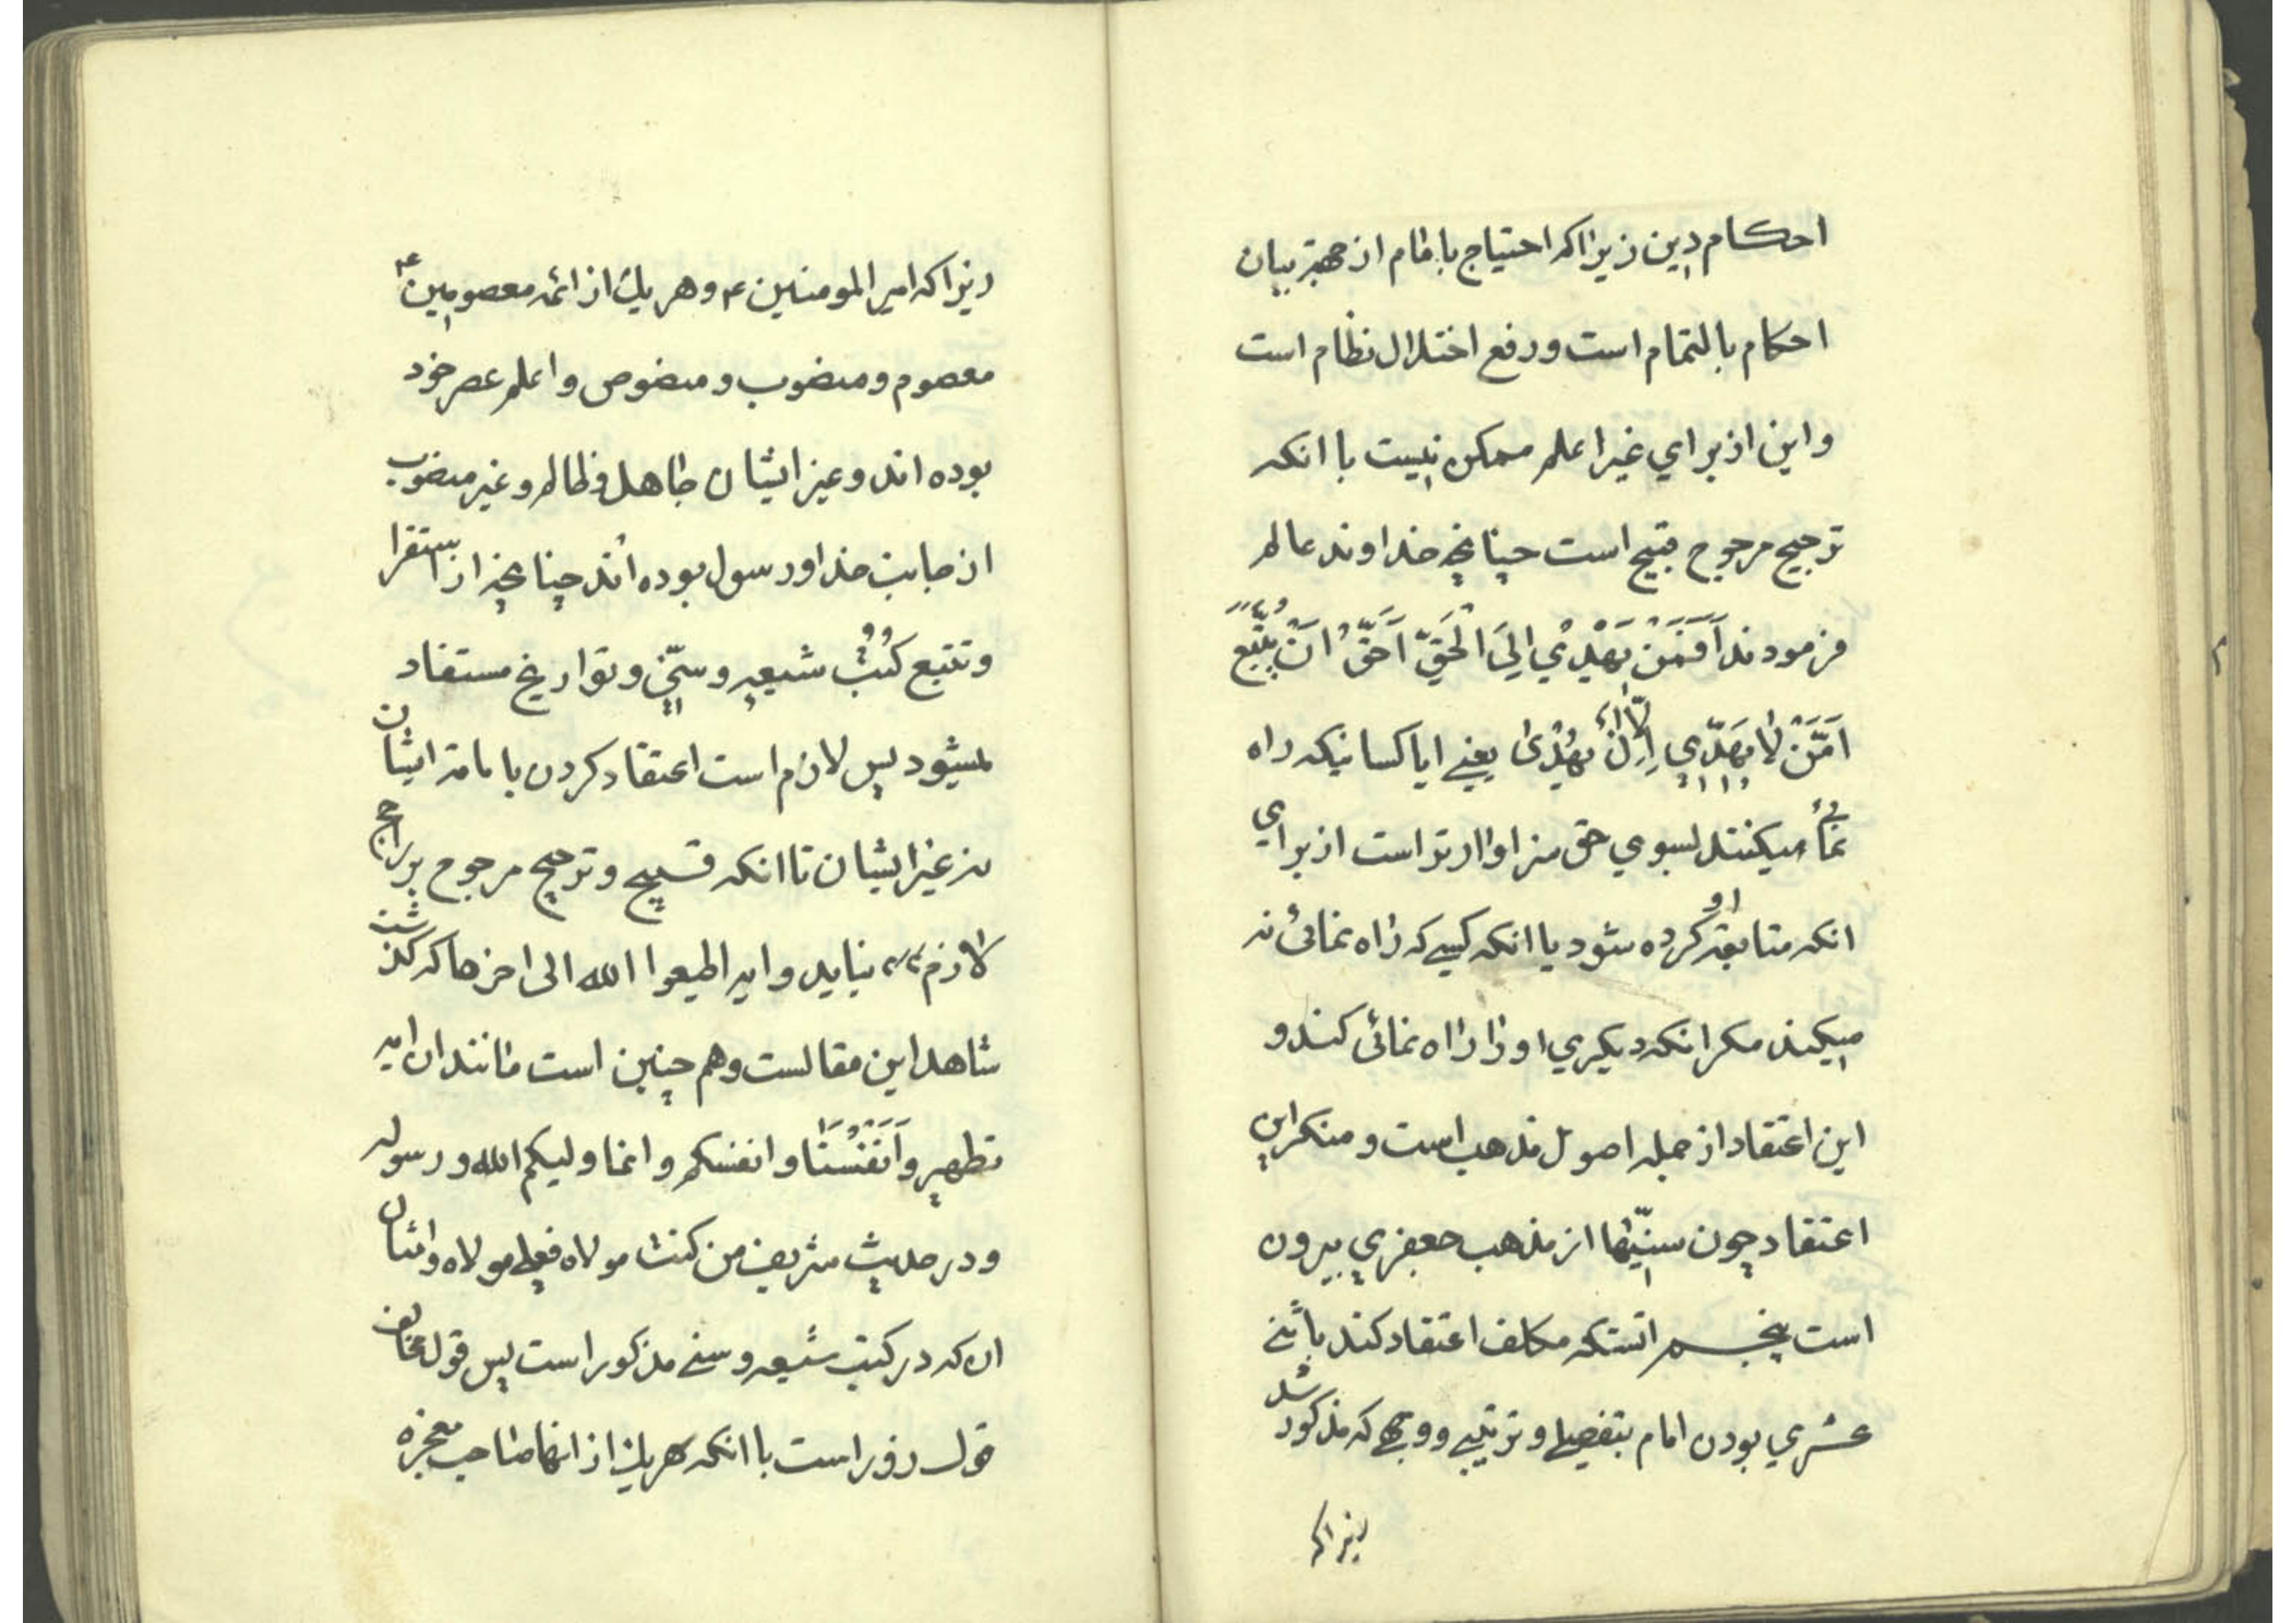 احکام دین زیرا که احتیاج بامام از جهة بیان
احکام بالتمام است و رفع اختلال نظام است
و این از برای غیر اعلم ممکن نیست با انکه
ترجیح مرجوح قبیح است چنانچه خداوند عالم
فرمودند اَفَمَنْ یَهْدْي اِلیَ الْحَقّ اَحَقُّ اَنْ یُتَّبَعَ
اَمَّنْ لا یَهِدّي اِلّا اَنْ یُهْدیٰ یعنے ایا کسانیکه راه
نمائی میکنند لسوي حق سزاوارتر است از برای
انکه متابعة او کرده شود یا انکه کسے که راه نمائی نه
میکند مکر انکه دیکري او را راه نمائی کند و
این اعتقاد از جمله اصول مذهب است و منکر این
اعتقاد چون سنیّها از مذهب جعفري بیرون
است پنجم انستکه مکلف اعتقاد کند باثنے
عشري بودن امام بتفصیلے و ترتیبے و وجهے که مذکور شد
زیرا که
زیرا که امیر المومنین ع و هر یك از ائمه معصومین ع
معصوم و منصوب و منصوص و اعلم عصر خود
بوده اند و غیر ایشان جاهل و ظالم و غیر منصوب
از جانب خدا و رسول بوده اند چنانچه از استقرا
و تتبع کُتُب شیعه و سنّي و تواریخ مستفاد
میشود پس لازم است اعتقاد کردن بامامة ایشان
نه غیر ایشان تا انکه قبیح و ترجیح مرجوح بر راجح
لازم نیاید و ایه اطیعوا الله الی اخرها که کذشت
شاهد این مقالست و هم چنین است مانند ان ایه
تطهیر و اَنَفْسُنَا و انفسکم و انما ولیکم الله و رسوله
و در حدیث شریف من کنت مولاه فعلے مولاه و امثان
ان که در کتب شیعه و سنے مذکور است پس قول مخالف
قول زور است با انکه هر یك از انها صاحب معجزه